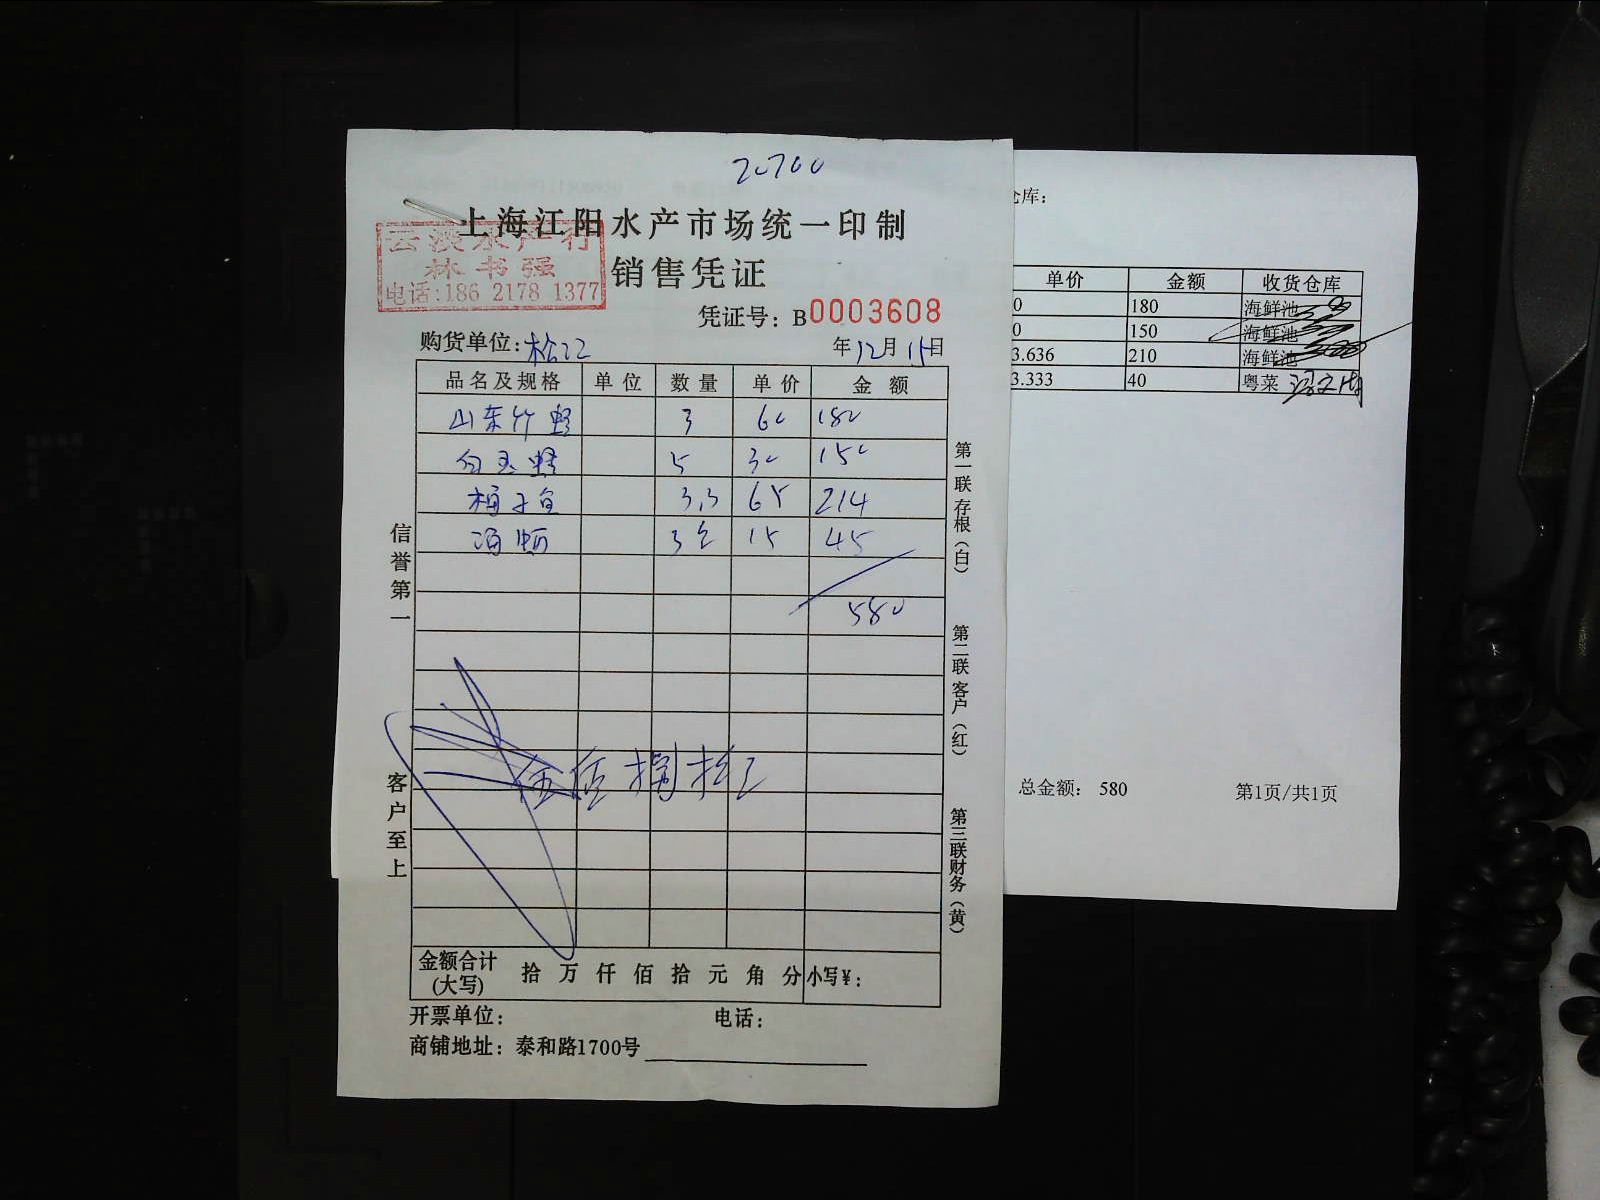 20700
上海江阳水产市场统一印制
云波水产行
林书强
电话:186 2178 1377
销售凭证
凭证号: B0003608
购货单位: 松江 年12月15日
品名及规格 单位 数量 单价 金额
山东竹蛏 3 60 180
白玉蛏 5 30 150
梅子鱼 3.3 65 214
3 15 45
580
伍佰捌拾元
信誉第一
客户至上
第一联存根(白)
第二联客户(红)
第三联财务(黄)
金额合计(大写) 拾 万 仟 佰 拾 元 角 分 小写¥:
开票单位: 电话:
商铺地址: 泰和路1700号
仓库:
单价 金额 收货仓库
0 180 海鲜池
0 150 海鲜池
3.636 210 海鲜池
3.333 40 粤菜
总金额: 580 第1页/共1页